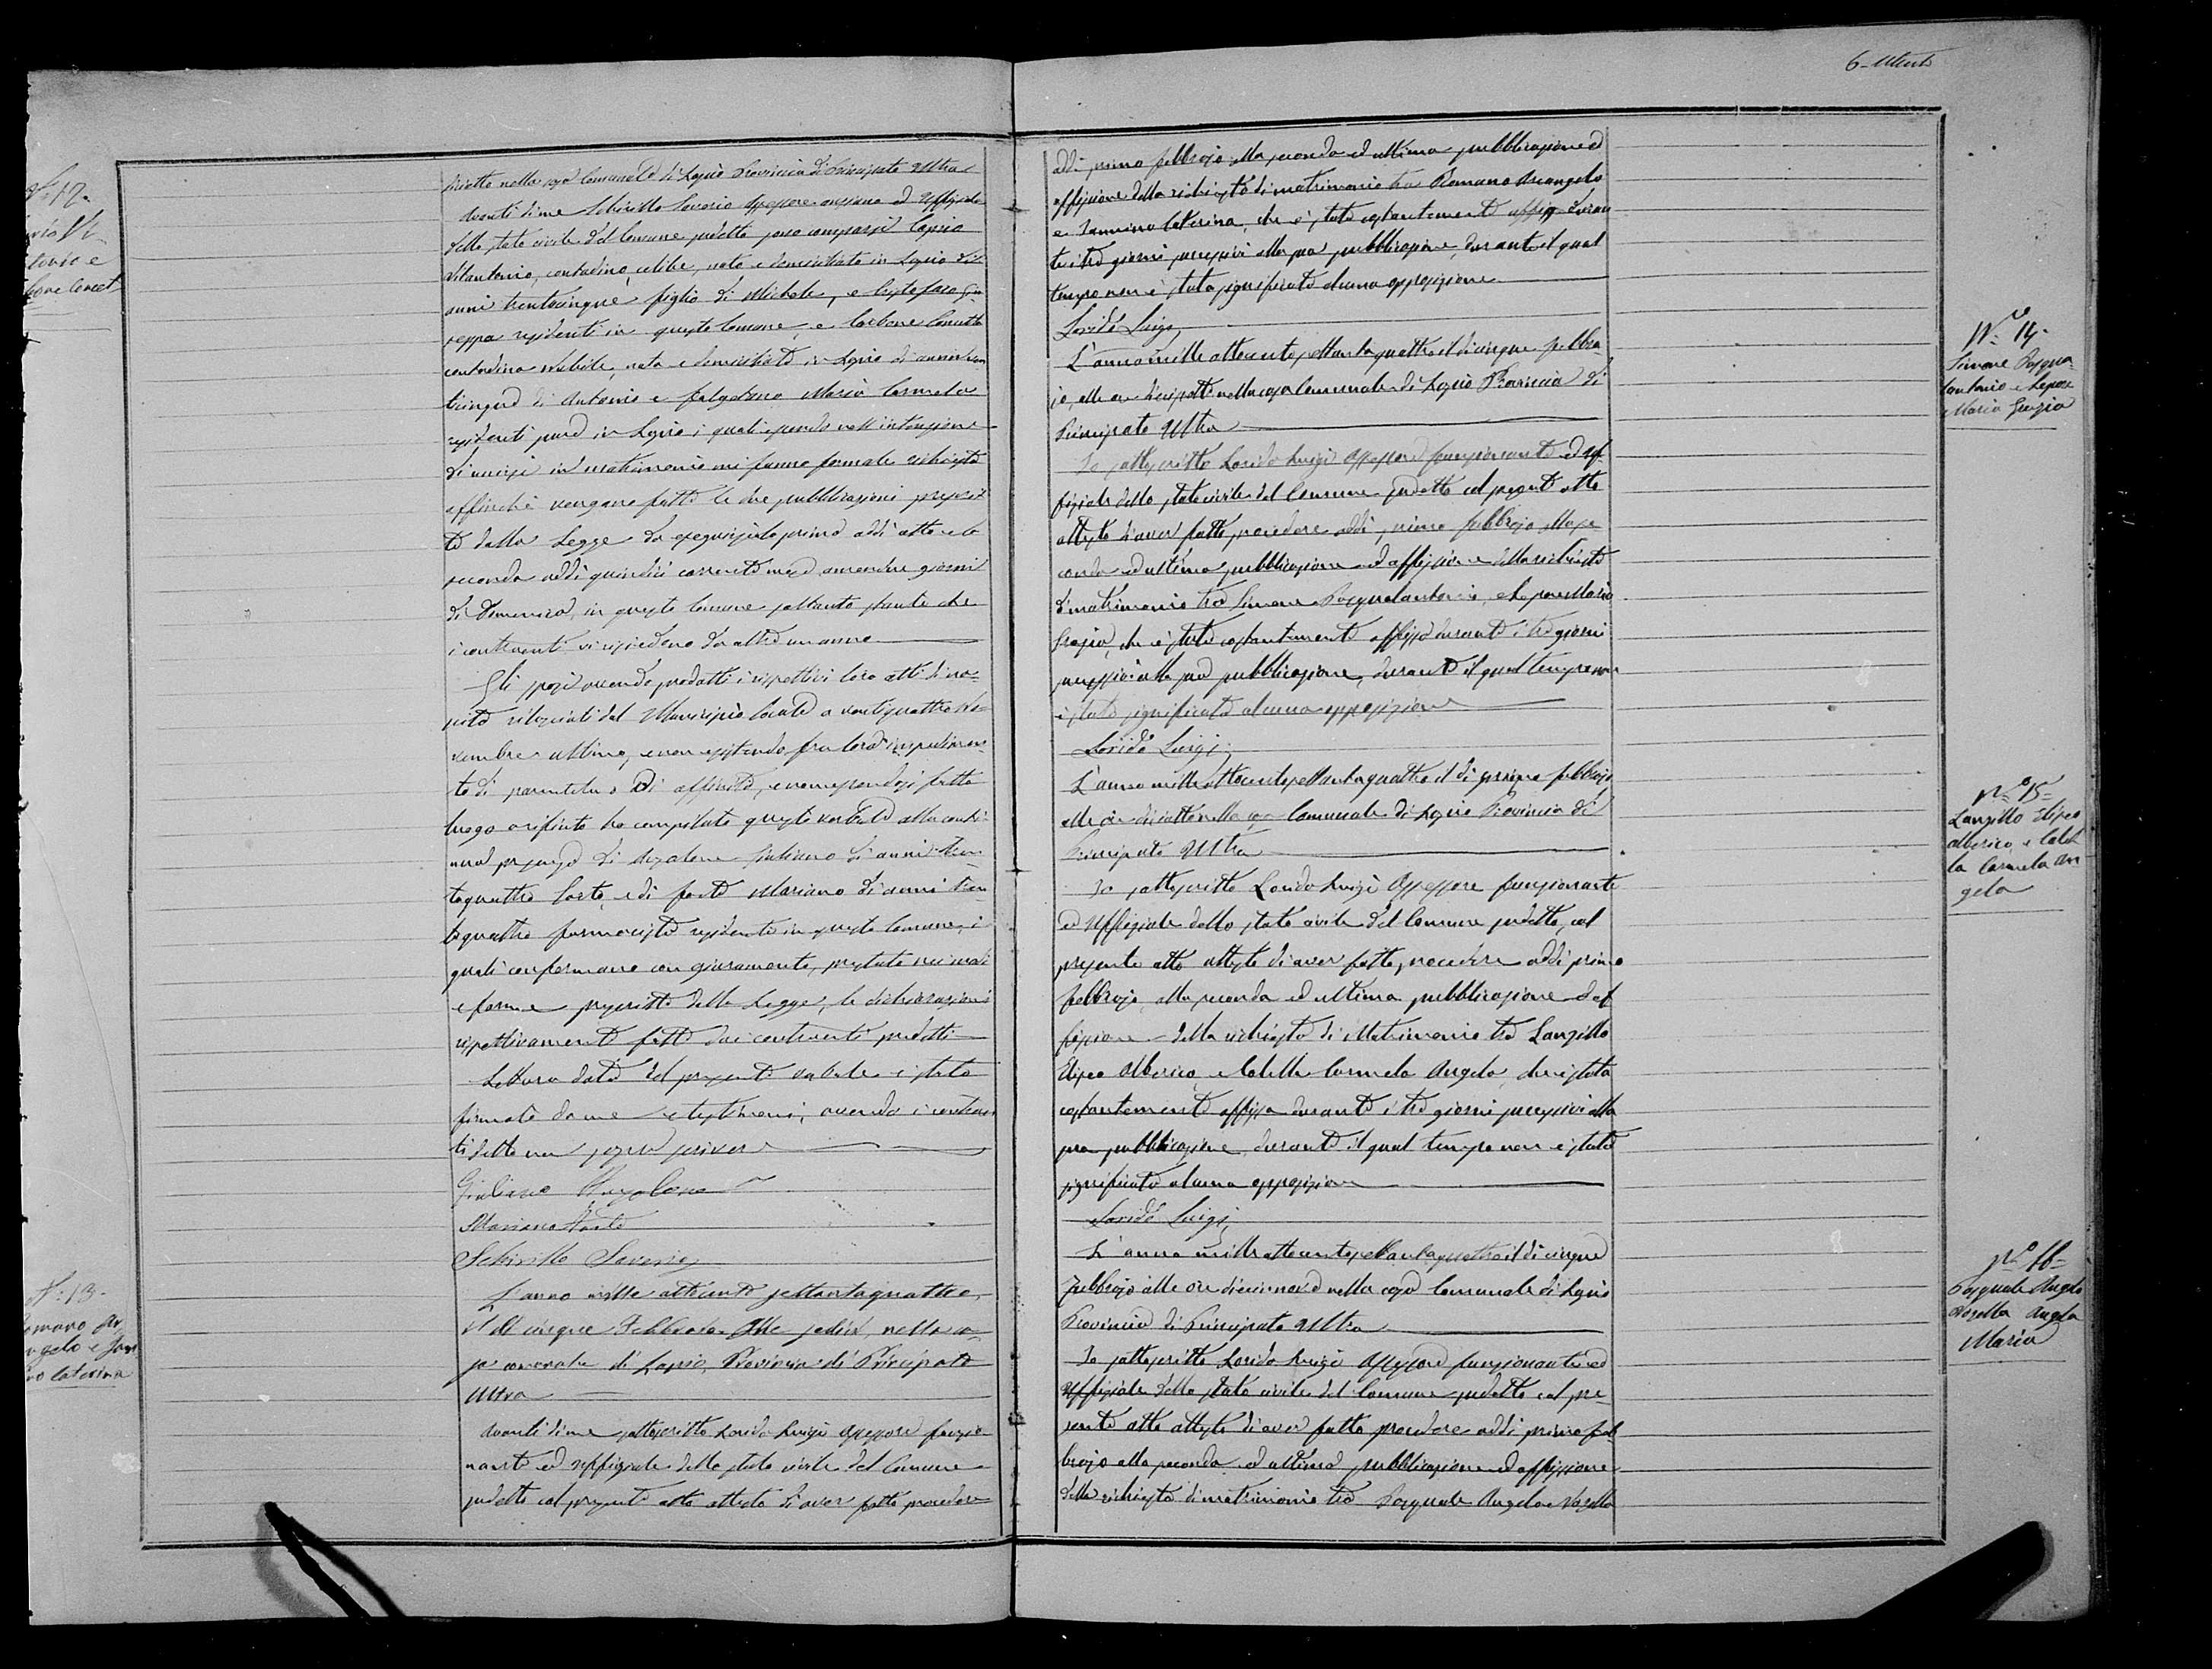 6-
N. 12.
ciotto nella casa Comunale di Lapio Provincia di Principato Ultra
Avanti di me Schirillo Saverio Assessore anziano ed Uffiziale
dello stato civile del Comune sudetto sono comparsi Caprio
Vitantonio, contadino, celibe, nato e domiciliato in Lapio di
anni trentacinque, figlio di Michele, e
seppa residenti in questo Comune, e Carbone Concetta
contadina nubile, nata e domiciliata in Lapio di anni
di Antonio e Maria Carmela
residenti pure in Lapio i quali essendo nell'intenzione
di unirsi in matrimonio mi fanno formale richiesta
affinchè vengano fatte le due pubblicazioni prescrit
te dalla Legge da eseguirsi la prima addi otto e la
seconda addi quindici corrente mese amendue giorni
di Domenica, in questo Comune soltanto stante che
i contraenti vi risiedono da oltre un anno
Gli sposi avendo prodotti i rispettivi loro atti di na-
scita rilasciati dal Municipio locale a ventiquattro No-
vembre ultimo, e non esistendo fra loro impedimen-
to di parentela o di affinità, e non essendosi fatto
luogo a rifiuto ho compilato questo verbale alla conti-
nua presenza di Angelone Giuliano di anni tren-
taquattro Sarto, e di Forte Mariano di anni tren
taquattro farmacista residenti in questo Comune, i
quali confermano con giuramento, prestato nei modi
e forme prescritte dalla Legge, le dichiarazioni
rispettivamente fatte dai contraenti predetti
Lettura data del presente verbale è stato
firmato da me e testimoni, avendo i contraen
ti detto non saper scrivere
Giuliano Angelone
Mariano Forte
Schirillo Saverio
N. 13.
Romano Ar
angelo e Jan
no Caterina
L'anno mille ottocento settantaquattro,
il dì cinque Febbraio Alle sedici, nella ca-
sa comunale di Lapio, Provincia di Principato
Ultra
Avanti di me sottoscritto Lorido Luigi Assessore funzio
nante ed uffiziale dello stato civile del Comune
sudetto col presente atto attesto di aver fatto procedere
addi primo febbrajo alla seconda ed ultima pubblicazione ed
affissione della richiesta di matrimonio tra Romano Arcangelo
e Jannino Caterina, che è stata costantemente affissa duran
te i tre giorni successivi alla sua pubblicazione, durante il qual
tempo non è stata significata alcuna opposizione
Lorido Luigi
N. 14.
Simone Pasqua
lantonio e Lepore
Maria Grazia
L'anno mille ottocento settantaquattro il dì cinque febbra
jo, alle ore diecisette nella casa Comunale di Lapio Provincia di
Principato Ultra
Io sottoscritto Lorido Luigi Assessore funzionante ed uf
fiziale dello stato civile del Comune sudetto col presente atto
attesto di aver fatto procedere addi primo febbrajo alla se
conda ed ultima pubblicazione ed affissione della richiesta
di matrimonio tra Simone Pasqualantonio, e Lepore Maria
Grazia, che è stata costantemente affissa durante i tre giorni
successivi alla sua pubblicazione, durante il qual tempo non
è stata significata alcuna opposizione
Lorido Luigi
N. 15.
Lanzillo Eliseo
Alberico, e Colel
la Carmela An
gela
L'anno mille ottocento settantaquattro il dì febbrajo
alle ore diciotto nella casa Comunale di Lapio Provincia di
Principato Ultra
Io sottoscritto Lorido Luigi Assessore funzionante
ed Uffiziale dello stato civile del Comune sudetto, col
presente atto attesto di aver fatto procedere addi primo
febbrajo, alla seconda ed ultima pubblicazione ed af
fissione della richiesta di Matrimonio tra Lanzillo
Eliseo Alberico, e Colella Carmela Angela, che è stata
costantemente affissa durante i tre giorni successivi alla
sua pubblicazione, durante il qual tempo non è stata
significata alcuna opposizione
Lorido Luigi
N. 16.
Pasquale Angelo
Angela
Maria
L'anno mille ottocento settantaquattro il dì cinque
Febbrajo alle ore diecinove nella casa Comunale di Lapio
Provincia di Principato Ultra
Io sottoscritto Lorido Luigi Assessore funzionante ed
Uffiziale dello stato civile del Comune sudetto col pre-
sente atto attesto di aver fatto procedere addi primo feb
brajo alla seconda ed ultima pubblicazione ed affissione
della richiesta di matrimonio tra Pasquale Angelo e